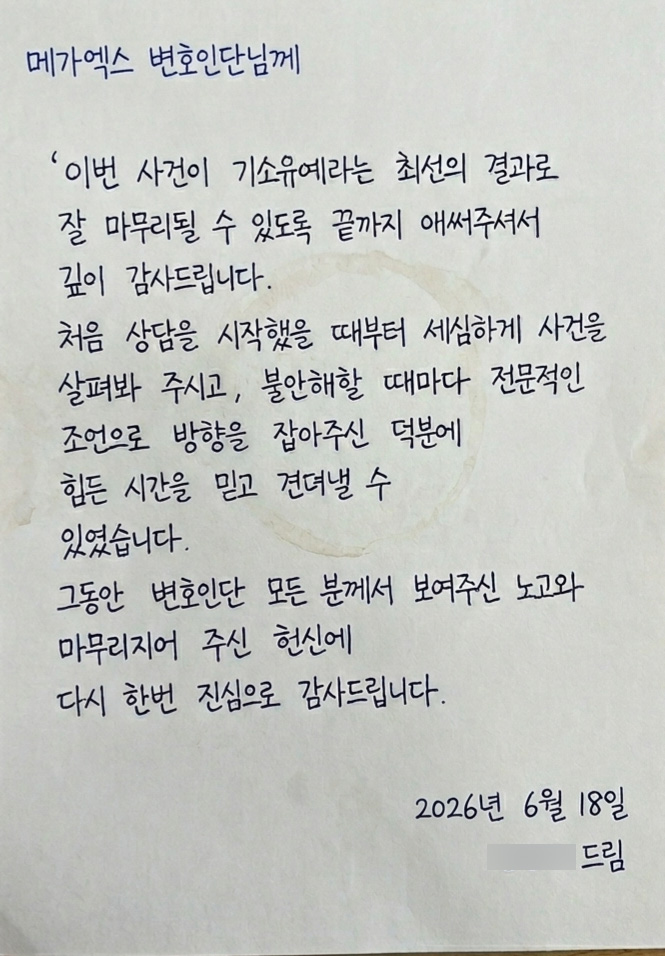 메가엑스 변호인단님께
‘이번 사건이 기소유예라는 최선의 결과로
잘 마무리될 수 있도록 끝까지 애써주셔서
깊이 감사드립니다.
처음 상담을 시작했을 때부터 세심하게 사건을
살펴봐 주시고, 불안해할 때마다 전문적인
조언으로 방향을 잡아주신 덕분에
힘든 시간을 믿고 견뎌낼 수
있였습니다.
그동안 변호인단 모든 분께서 보여주신 노고와
마무리지어 주신 헌신에
다시 한번 진심으로 감사드립니다.
2026년 6월 18일
드림